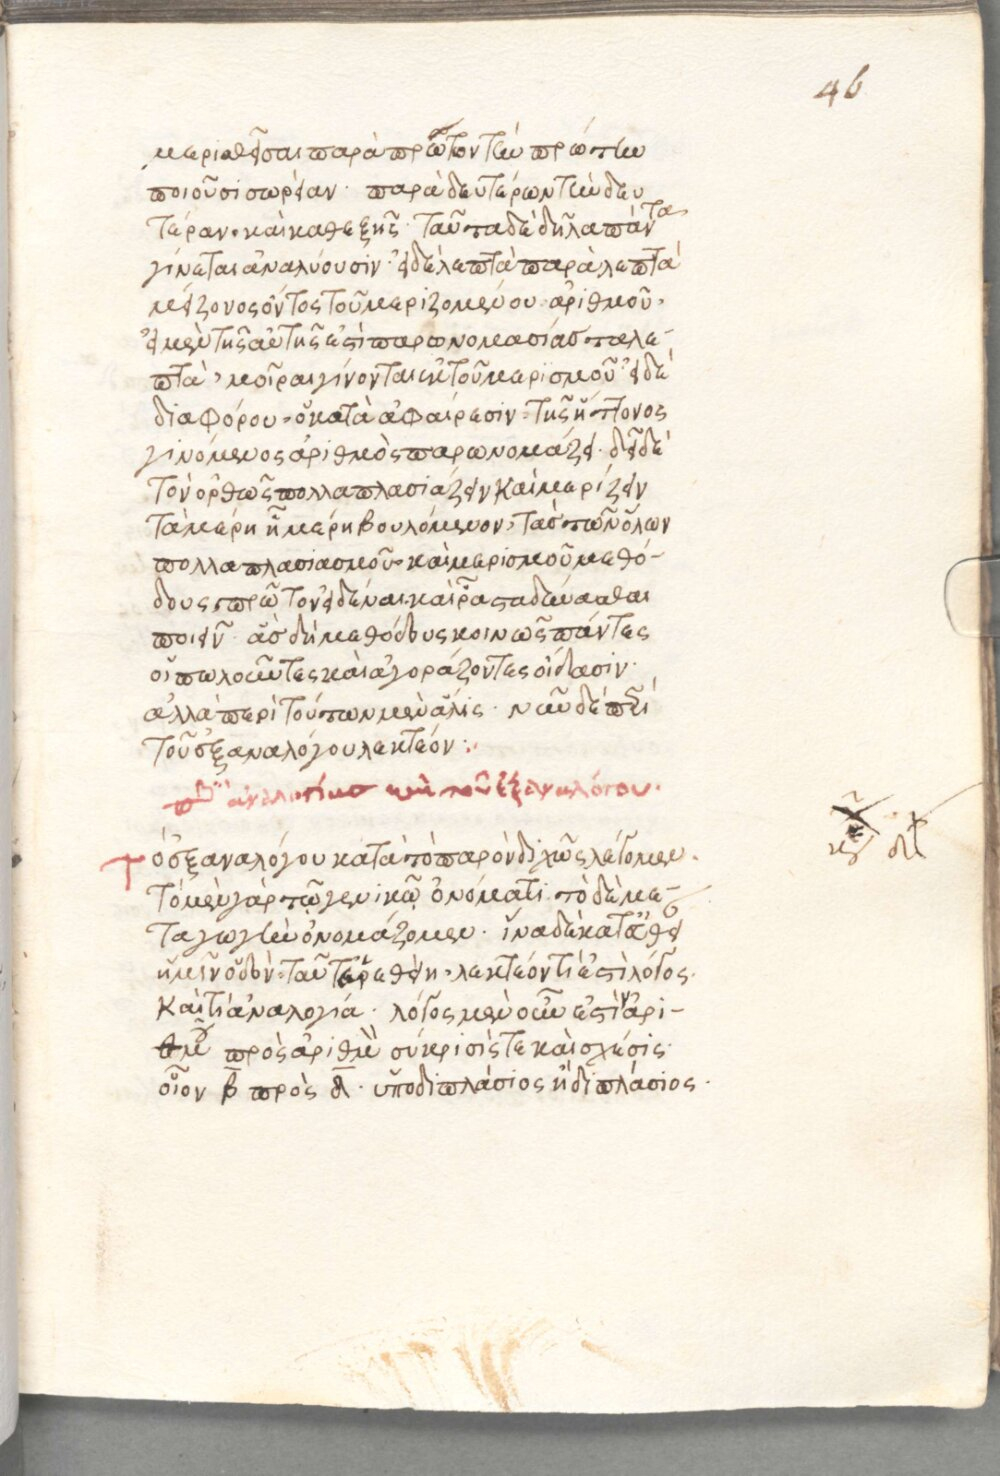 46
μερισθεῖσαι παρὰ πρῶτον τὴν πρώτην
ποιοῦσι σωρείαν· παρὰ δευτέρων τὴν δευ
τέραν· καὶ καθεξῆς· ταῦτα δὲ δῆλα πάντα
γίνεται ἀναλύουσιν· εἰ δὲ λεπτὰ παρὰ λεπτὰ
μείζονος ὄντος τοῦ μεριζομένου ἀριθμοῦ·
εἰ μὲν τῆς αὐτῆς ἐστὶ παρωνομασίας τὰ λε-
πτὰ, μοῖραι γίνονται ἐκ τοῦ μερισμοῦ· εἰ δὲ
διαφόρου· ὁ κατὰ ἀφαίρεσιν τῆς ἥττονος
γινόμενος ἀριθμὸς παρωνομάζει· δεῖ δὲ
τὸν ὀρθῶς πολλαπλασιάζειν καὶ μερίζειν
τὰ μέρη ἢ μέρη βουλόμενον, τὰς τῶν ὅλων
πολλαπλασιασμοῦ καὶ μερισμοῦ μεθό-
δους πρῶτον εἰδέναι καὶ
ποιεῖν· ἃς δὴ μεθόδους κοινῶς πάντες
οἱ πωλοῦντες καὶ ἀγοράζοντες οἴδασιν·
ἀλλὰ περὶ τούτων μὲν ἅλις· νῦν δὲ περὶ
τοῦ ἐξαναλόγου λεκτέον:
περὶ ἀναλογίας καὶ τοῦ ἐξαναλόγου.
Τὸ ἐξαναλόγου κατὰ τὸ παρὸν διχῶς λέγομεν·
τὸ μὲν γὰρ τῷ γενικῷ ὀνόματι· τὸ δὲ με-
ταγωγὴν ὀνομάζομεν· ἵνα δὲ
ἡμῖν λεκτέον τί ἐστὶ λόγος·
καὶ τί ἀναλογία· λόγος μὲν οὖν ἐστὶν ἀρι-
θμοῦ πρὸς ἀριθμὸν σύγκρισίς τε καὶ σχέσις·
οἷον β πρὸς δ· ὑποδιπλάσιος ἢ διπλάσιος·